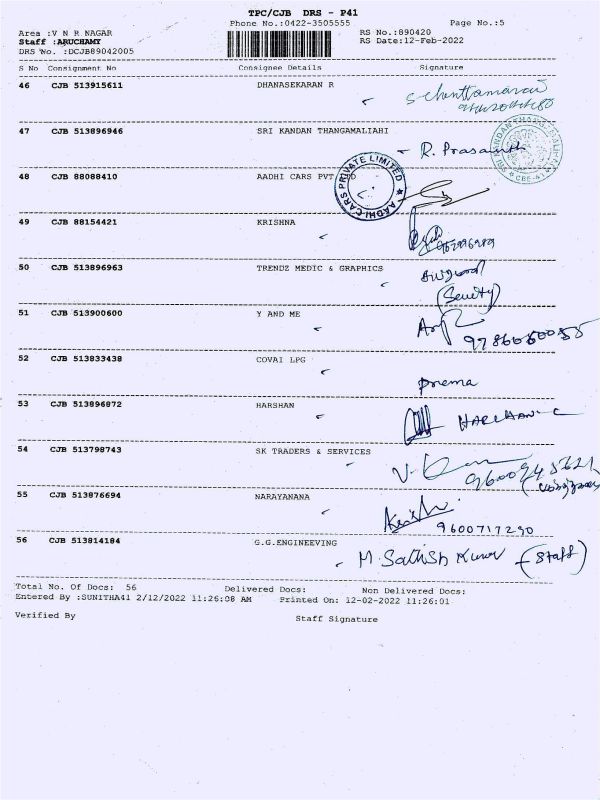 TPC/CJB DRS - P41
Phone No.:0422-3505555
Page No.:5
Area :V N R NAGAR
RS No.:890420
Staff :ARUCHAMY
RS Date:12-Feb-2022
DRS No. :DCJB89042005
S No Consignment No Consignee Details Signature
46 CJB 513915611 DHANASEKARAN R
47 CJB 513896946 SRI KANDAN THANGAMALIAHI
R. Prasanth
48 CJB 88088410 AADHI CARS PVT
AADHI CARS PRIVATE LIMITED
49 CJB 88154421 KRISHNA
50 CJB 513896963 TRENDZ MEDIC & GRAPHICS
51 CJB 513900600 Y AND ME
52 CJB 513833438 COVAI LPG
prema
53 CJB 513896872 HARSHAN
54 CJB 513798743 SK TRADERS & SERVICES
55 CJB 513876694 NARAYANANA
9600717290
56 CJB 513814184 G.G.ENGINEEVING
M. Sathish Kumar (Staff)
Total No. Of Docs: 56 Delivered Docs: Non Delivered Docs:
Entered By :SUNITHA41 2/12/2022 11:26:08 AM Printed On: 12-02-2022 11:26:01
Verified By Staff Signature